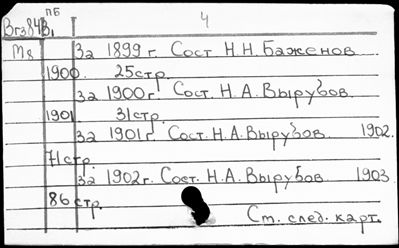 ПБ
Вгз84В1 4
М8 за 1899 г. Сост Н.Н. Баженов
1900. 25стр.
за 1900г. Сост. Н.А. Вырубов
1901 31стр.
за 1901г. Сост. Н.А. Вырубов 1902.
71стр.
за 1902г. Сост. Н.А. Вырубов 1903
86стр.
См. след. карт.